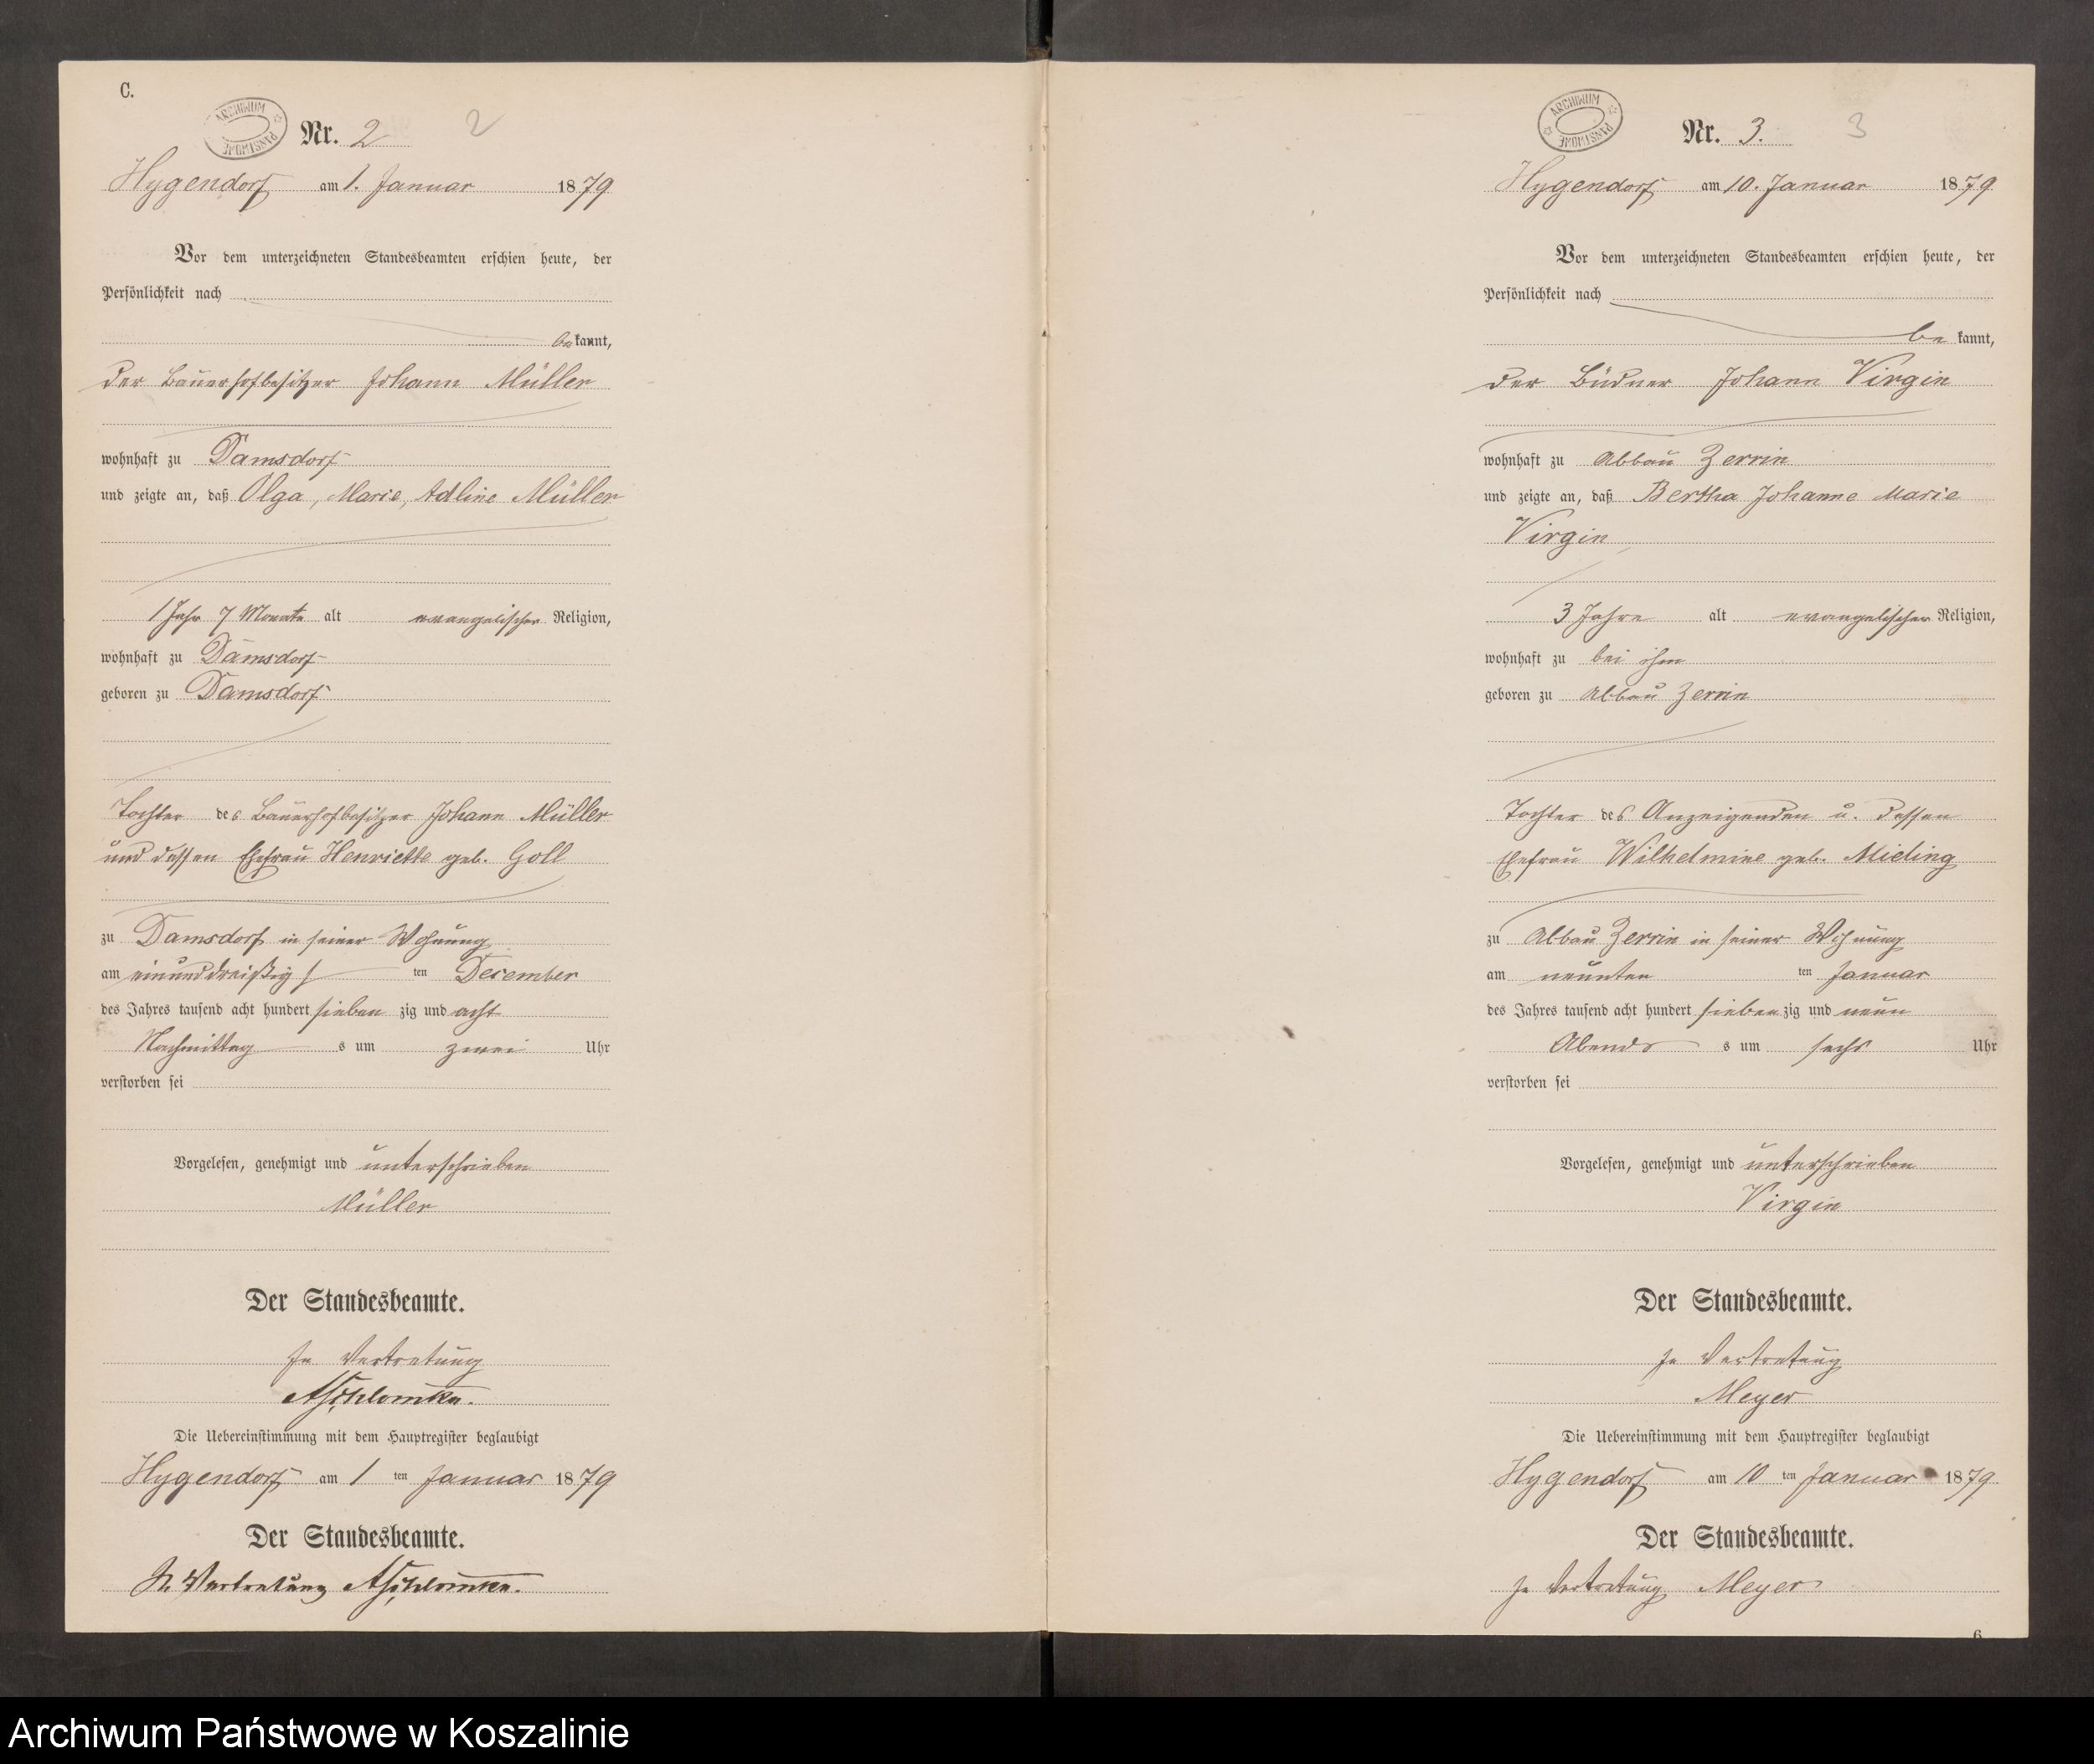 C.
ARCHIWUM PAŃSTWOWE
Nr. 2
2
Hygendorf am 1. Januar 1879
Vor dem unterzeichneten Standesbeamten erschien heute, der
Persönlichkeit nach
bekannt,
der Bauerhofbesitzer Johann Müller
wohnhaft zu Damsdorf
und zeigte an, daß Olga, Marie, Adline Müller
1 Jahr 7 Monate alt evangelischer Religion,
wohnhaft zu Damsdorf
geboren zu Damsdorf
Tochter des Bauerhofbesitzer Johann Müller
und dessen Ehefrau Henriette geb. Goll
zu Damsdorf in seiner Wohnung
am einunddreißig s ten December
des Jahres tausend acht hundert siebenzig und acht
Nachmittag s um zwei Uhr
verstorben sei
Vorgelesen, genehmigt und unterschrieben
Müller
Der Standesbeamte.
In Vertretung
Die Uebereinstimmung mit dem Hauptregister beglaubigt
Hygendorf am 1 ten Januar 1879
Der Standesbeamte.
In Vertretung
ARCHIWUM PAŃSTWOWE
Nr. 3.
3
Hygendorf am 10. Januar 1879
Vor dem unterzeichneten Standesbeamten erschien heute, der
Persönlichkeit nach
bekannt,
der Büdner Johann Virgin
wohnhaft zu Abbau Zerrin
und zeigte an, daß Bertha Johanne Marie
Virgin
3 Jahre alt evangelischer Religion,
wohnhaft zu bei ihm
geboren zu Abbau Zerrin
Tochter des Anzeigenden u. dessen
Ehefrau Wilhelmine geb. Mieling
zu Abbau Zerrin in seiner Wohnung
am neunten ten Januar
des Jahres tausend acht hundert siebenzig und neun
Abends s um sechs Uhr
verstorben sei
Vorgelesen, genehmigt und unterschrieben
Virgin
Der Standesbeamte.
In Vertretung
Meyer
Die Uebereinstimmung mit dem Hauptregister beglaubigt
Hygendorf am 10 ten Januar 1879
Der Standesbeamte.
In Vertretung Meyer
6
Archiwum Państwowe w Koszalinie